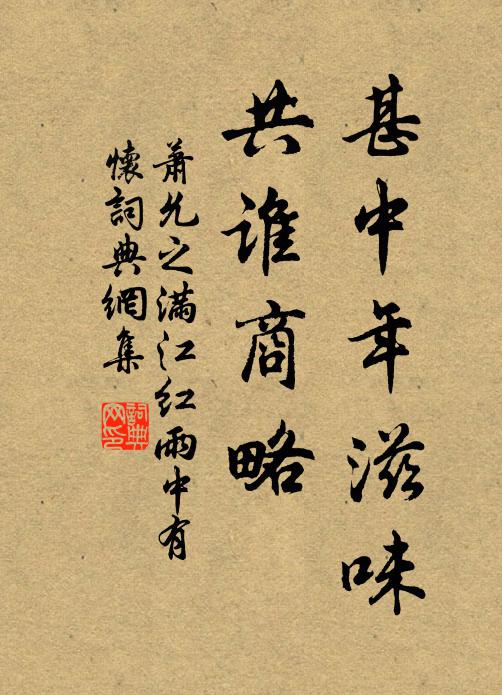 甚中年滋味
共谁商略
萧允之满江红雨中有
怀词典網集
詞典
网印